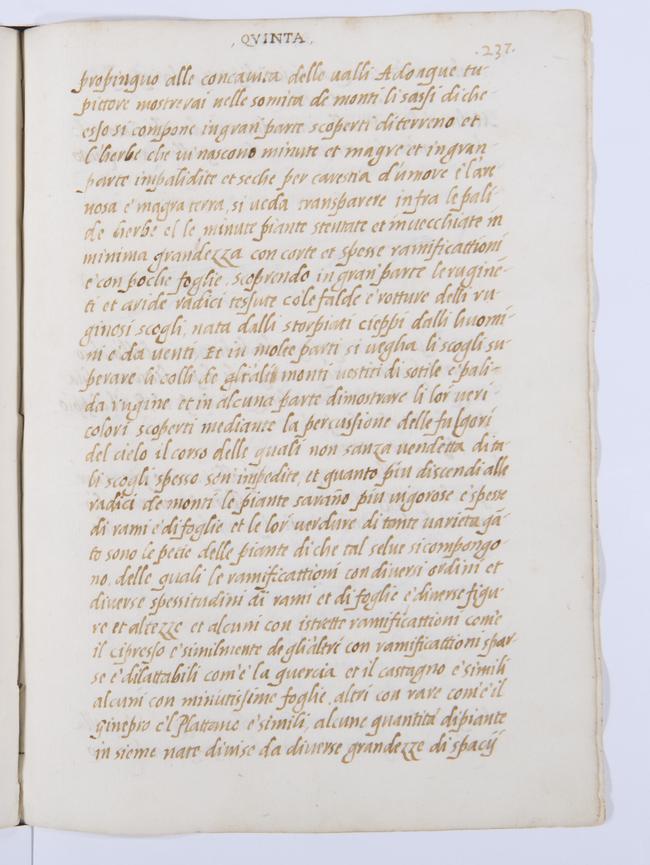 ,QVINTA,
.237.
propinquo alle concauita delle ualli Adonque tu
pittore mostrerai nelle somita de monti li sassi di che
esso si compone in gran parte scoperti di terreno et
l'herbe che ui nascono minute et magre et in gran
parte impalidite et seche per carestia d'umore è l'are
nosa è magra terra, si ueda transparere infra le pali
de herbe et le minute piante stentate et inuecchiate in
minima grandezza con corte et spesse ramificattioni
è con poche foglie, scoprendo in gran parte le rugine-
ti et aride radici tessute cole falde è rotture delli ru-
ginosi scogli, nata dalli storpiati cieppi dalli huomi-
ni è da uenti. Et in molte parti si uegha li scogli su-
perare li colli de gli alti monti uestiti di sotile è pali-
da rugine et in alcuna parte dimostrare li lor ueri
colori scoperti mediante la percussione delle fulgori
del cielo il corso delle quali non sanza uendetta di ta
li scogli spesso sen'impedite, et quanto piu discendi alle
radici de monti le piante sarano piu uigorose è spesse
di rami è di foglie et le lor uerdure di tante uarieta qã-
to sono le petie delle piante di che tal selue si compongo-
no, delle quali le ramificattioni con diuersi ordini et
diuerse spessitudini di rami et di foglie è diuerse figu-
re et altezze et alcuni con istrette ramificattioni com'è
il cipresso è similmente de gli altri con ramificattioni spar-
se è dilattabili com'è la quercia et il castagno è simili
alcuni con minutissime foglie, altri con rare com'è il
Ginepro è'l Plattano è simili, alcune quantità di piante
in sieme nate diuise da diuerse grandezze di spacij